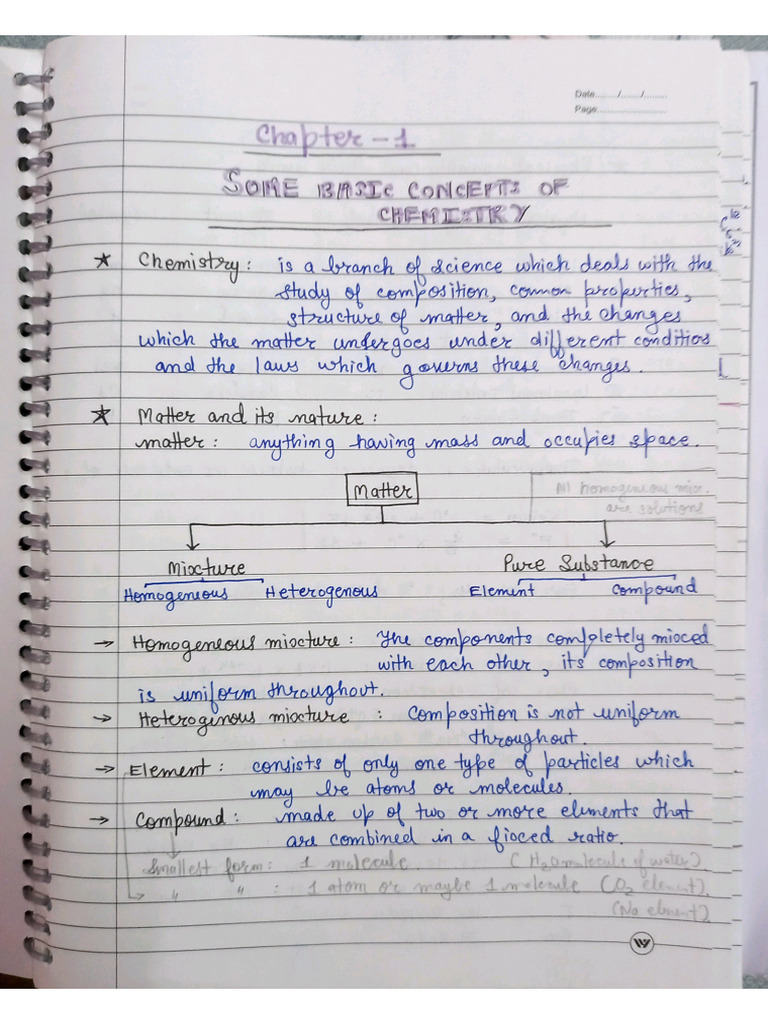 Date......./......./.......
Page.......................
Chapter - 1
SOME BASIC CONCEPTS OF
CHEMISTRY
* Chemistry : is a branch of science which deals with the
study of composition, common properties,
structure of matter, and the changes
which the matter undergoes under different conditions
and the laws which governs these changes.
* Matter and its nature :
matter : anything having mass and occupies space.
Matter
All homogeneous mix.
are solutions
Mixture Pure Substance
Homogeneous Heterogenous Element Compound
→ Homogeneous mixture : The components completely mixed
with each other, its composition
is uniform throughout.
→ Heteroginous mixture : Composition is not uniform
throughout.
→ Element : consists of only one type of particles which
may be atoms or molecules.
→ Compound : made up of two or more elements that
are combined in a fixed ratio.
Smallest form : 1 molecule. (H2O molecule of water)
" " : 1 atom or maybe 1 molecule (O2 element).
(Na element)
W